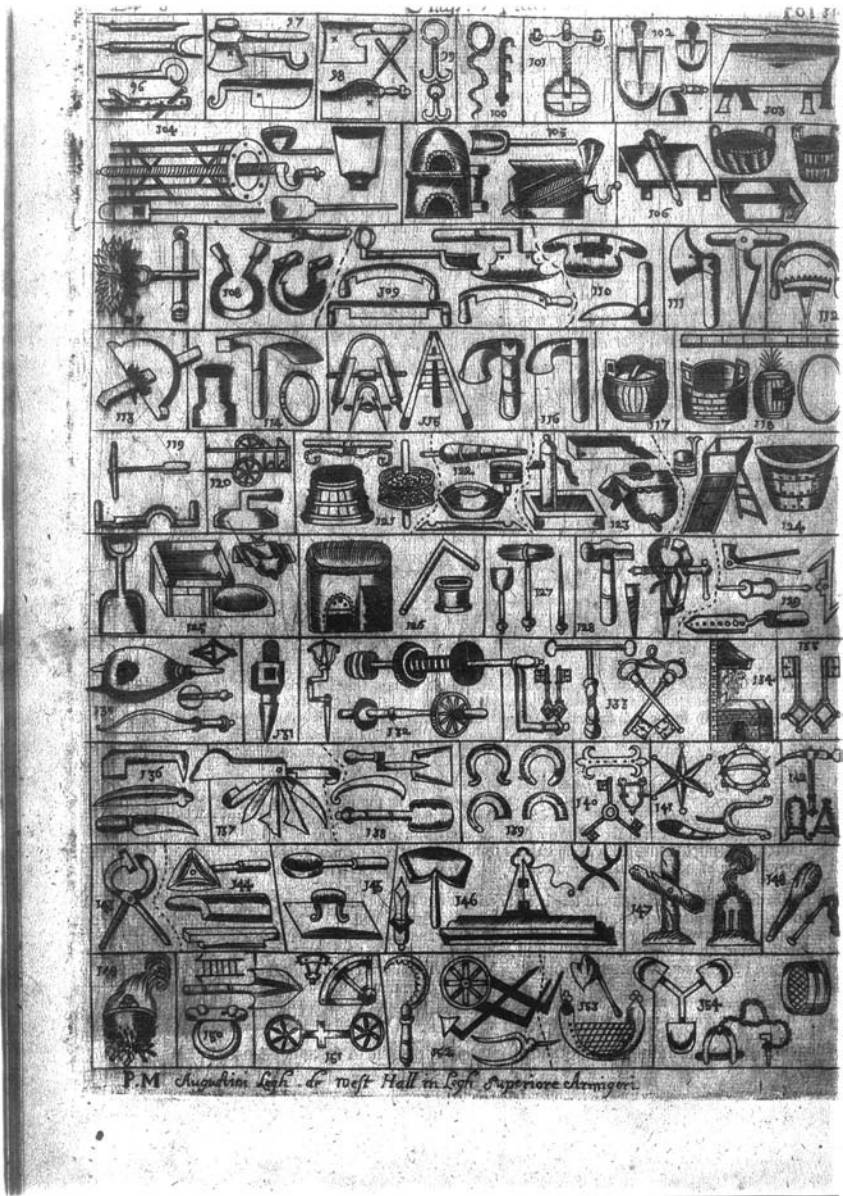 97
96
98
99
100
101
102
103
104
105
106
108
109
110
111
112
113
114
115
116
117
118
119
120
121
122
123
124
125
126
127
128
129
131
132
133
134
135
136
137
138
139
140
141
142
143
144
145
146
147
148
149
150
151
152
153
154
P.M Augustini Legh. de west Hall in Legh Superiore Armigeri